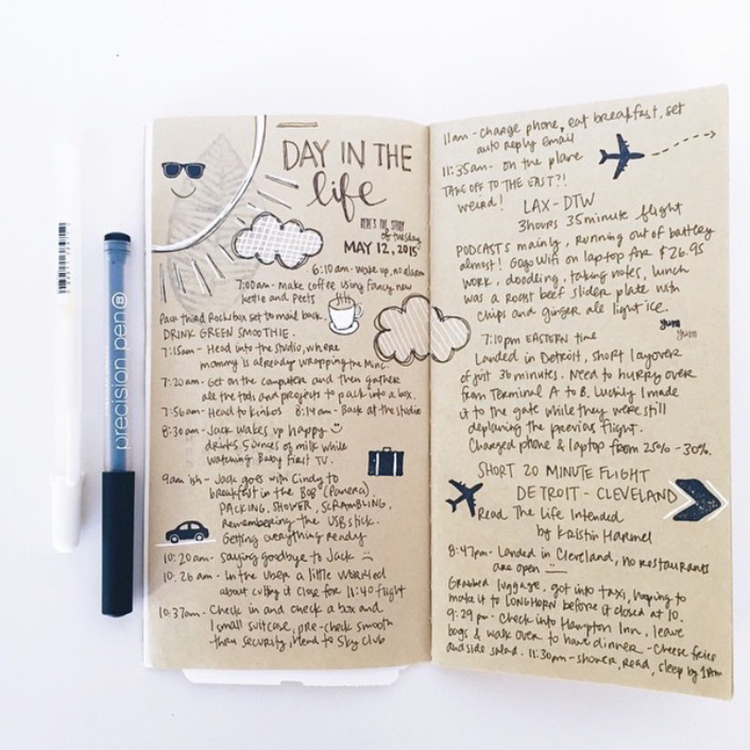 precision pen B
DAY IN THE
life
HERE'S THE STORY
of tuesday
MAY 12, 2015
6:10am - wake up, no alarm
7:00am - make coffee using fancy new
kettle and Peets
Pack third Rocksbox set to mail back.
DRINK GREEN SMOOTHIE.
7:15am - Head into the studio, where
mommy is already wrapping the Minc.
7:20am - Get on the computer and then gather
all the tools and projects to pack into a box.
7:56am - Head to Kinkos 8:14am - Back at the studio
8:30am - Jack wakes up happy
drinks 5 ounces of milk while
watching Baby First TV.
9am'ish - Jack goes with Cindy to
breakfast in the BOB (Panera).
PACKING, SHOWER, SCRAMBLING,
Remembering the USB stick.
Getting everything ready
10:20am - saying goodbye to Jack :(
10:26am - In the Uber a little worried
about cutting it close for 11:40 flight
10:37am - Check in and check a box and
1 small suitcase, pre-check smooth
thru security, Head to Sky Club
11am - charge phone, eat breakfast, set
auto reply email
11:35am - on the plane
TAKE OFF TO THE EAST?!
weird!
LAX - DTW
3hours 35minute flight
PODCASTS mainly, running out of battery
almost! Gogo Wifi on laptop for $26.95
WORK, doodling, taking notes, lunch
was a Roast beef slider plate with
chips and ginger ale light ice.
yum
yum
7:10pm EASTERN time
Landed in Detroit, short layover
of just 36 minutes. Need to hurry over
from Terminal A to B. Luckily I made
it to the gate while they were still
deplaning the previous flight.
Charged phone & laptop from 25% - 30%.
SHORT 20 MINUTE FLIGHT
DETROIT - CLEVELAND
Read The Life Intended
by Kristin Harmel
8:47pm - Landed in Cleveland, no restaurants
are open
Grabbed luggage, got into taxi, hoping to
make it to LONGHORN before it closed at 10.
9:29pm - Check into Hampton Inn, leave
bags & walk over to have dinner - Cheese fries
and side salad. 11:30pm - shower, Read, sleep by 1am